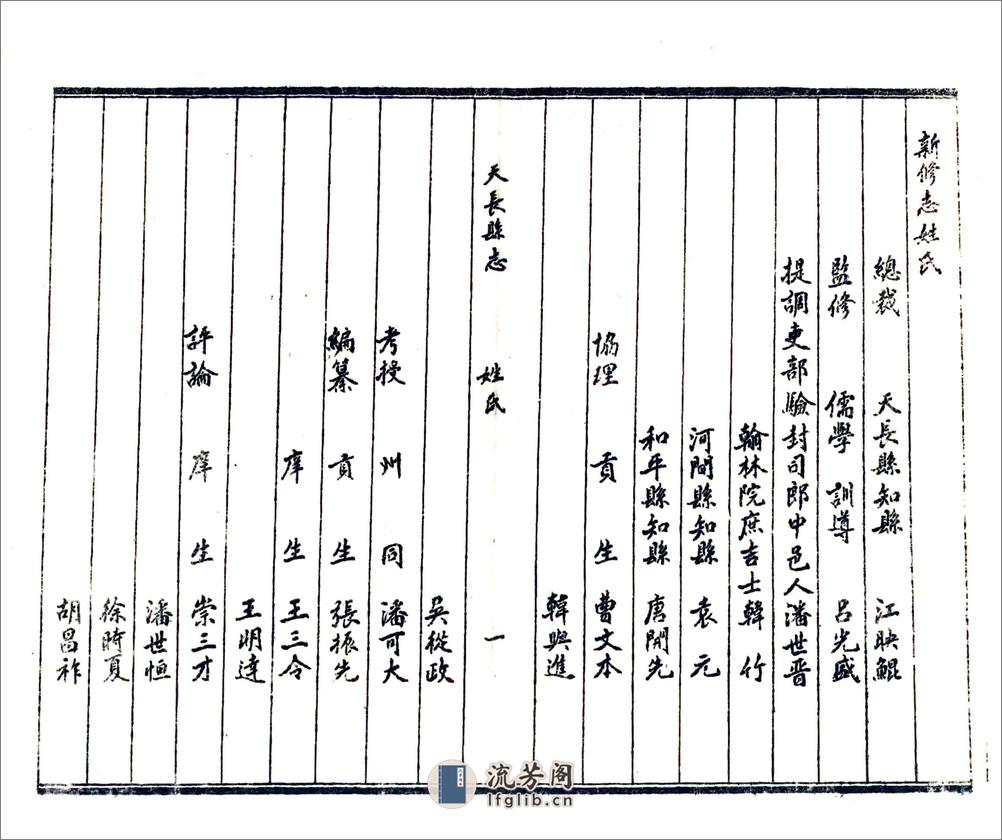 新修志姓氏
總裁 天長縣知縣 江映鯤
監修 儒學 訓導 呂光盛
提調吏部驗封司郎中邑人潘世晋
翰林院庶吉士韓竹
河間縣知縣 袁元
和平縣知縣 唐開先
協理 貢生 曹文本
韓興進
天長縣志 姓氏 一
吳從政
考授 州同 潘可大
編纂 貢生 張振先
庠生 王三令
王明達
評論 庠生 崇三才
潘世恒
徐時夏
胡昌祚
流芳阁
lfglib.cn